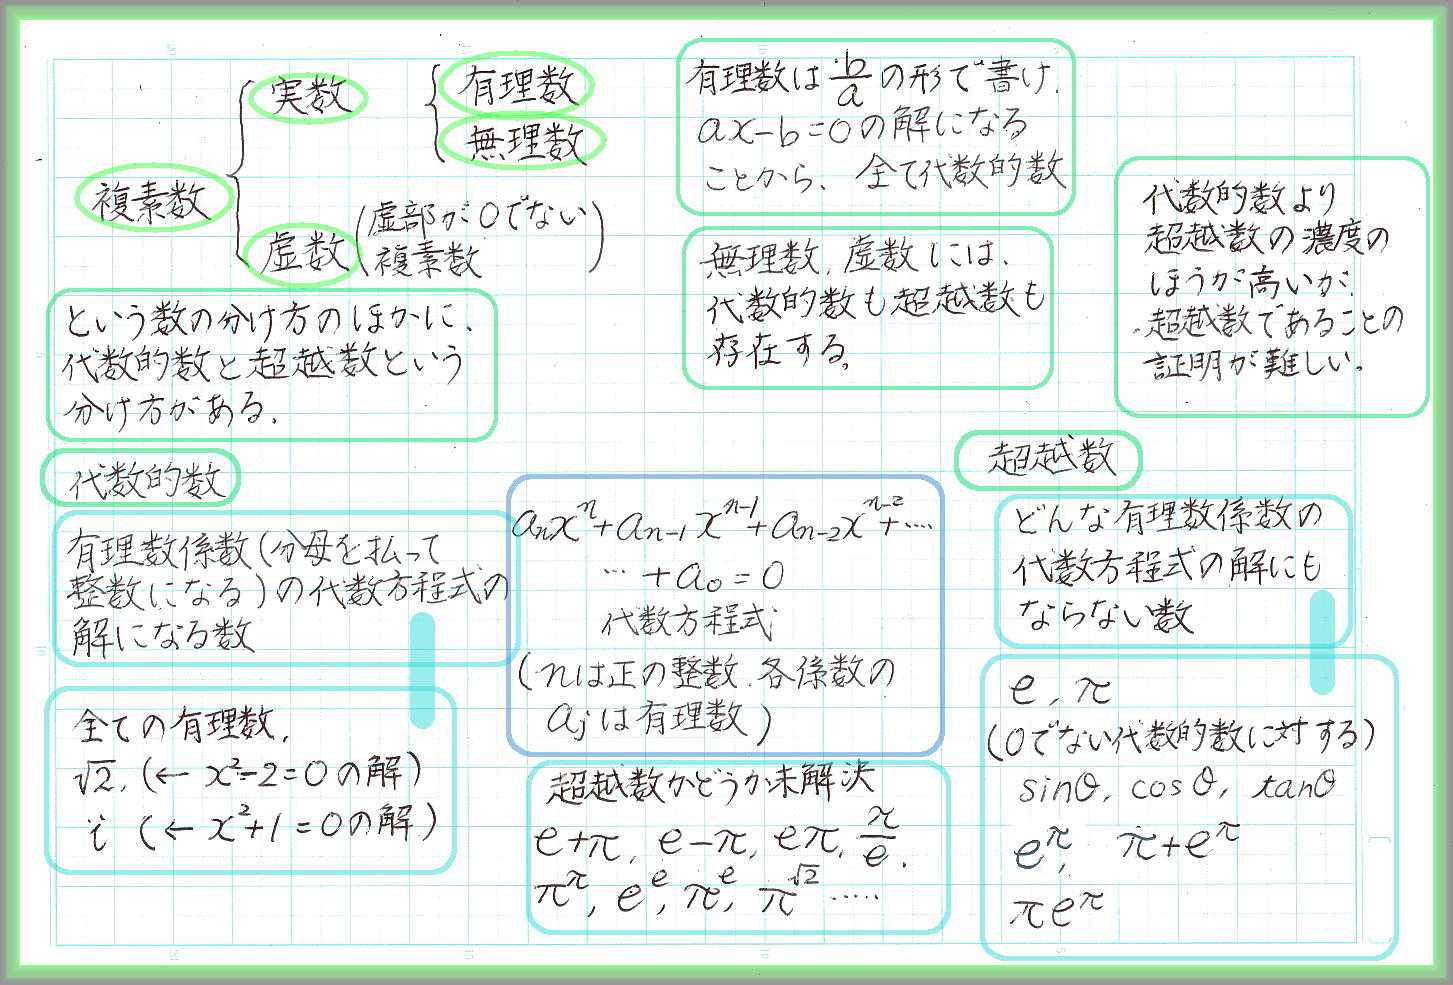 複素数
実数
有理数
無理数
虚数
(虚部が0でない
複素数)
有理数は b/a の形で書け.
ax-b=0の解になる
ことから、全て代数的数
無理数,虚数には、
代数的数も超越数も
存在する。
代数的数より
超越数の濃度の
ほうが高いが,
超越数であることの
証明が難しい。
という数の分け方のほかに、
代数的数と超越数という
分け方がある.
代数的数
有理数係数(分母を払って
整数になる)の代数方程式の
解になる数
全ての有理数,
√2, (← x²-2=0の解)
i (← x²+1=0の解)
aₙxⁿ+aₙ₋₁xⁿ⁻¹+aₙ₋₂xⁿ⁻²+‥‥
‥+a₀=0
代数方程式
(nは正の整数.各係数の
ajは有理数)
超越数かどうか未解決
e+π, e-π, eπ, π/e.
π^π, e^e, π^e, π^√2 ‥‥
超越数
どんな有理数係数の
代数方程式の解にも
ならない数
e, π
(0でない代数的数に対する)
sinθ, cosθ, tanθ
e^π, π+e^π
πe^π